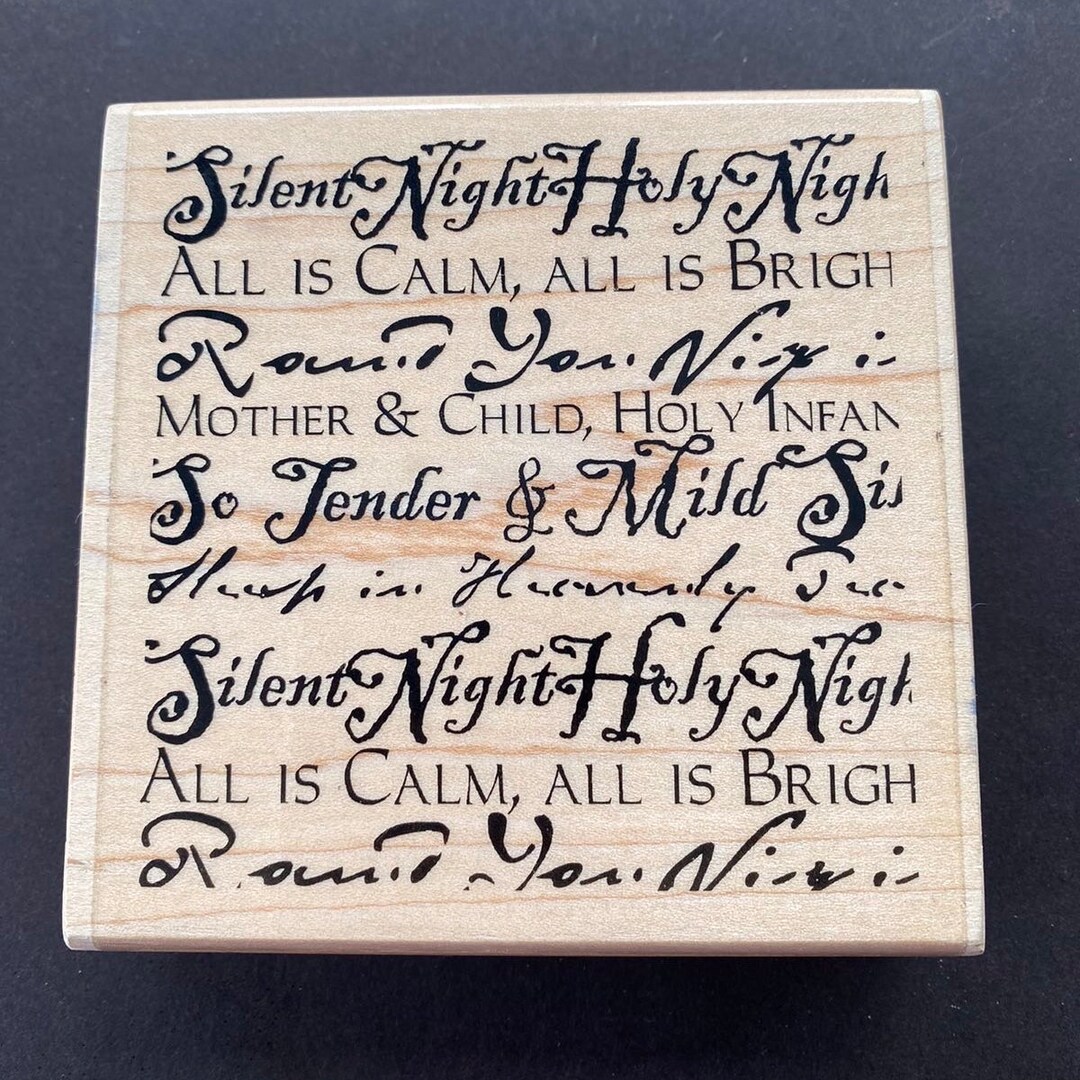 Silent Night Holy Nigh
ALL IS CALM, ALL IS BRIGH
Round Yon Virg i
MOTHER & CHILD, HOLY INFAN
So Tender & Mild Sis
Sleep in Heavenly Pea
Silent Night Holy Nigh
ALL IS CALM, ALL IS BRIGH
Round Yon Virg i